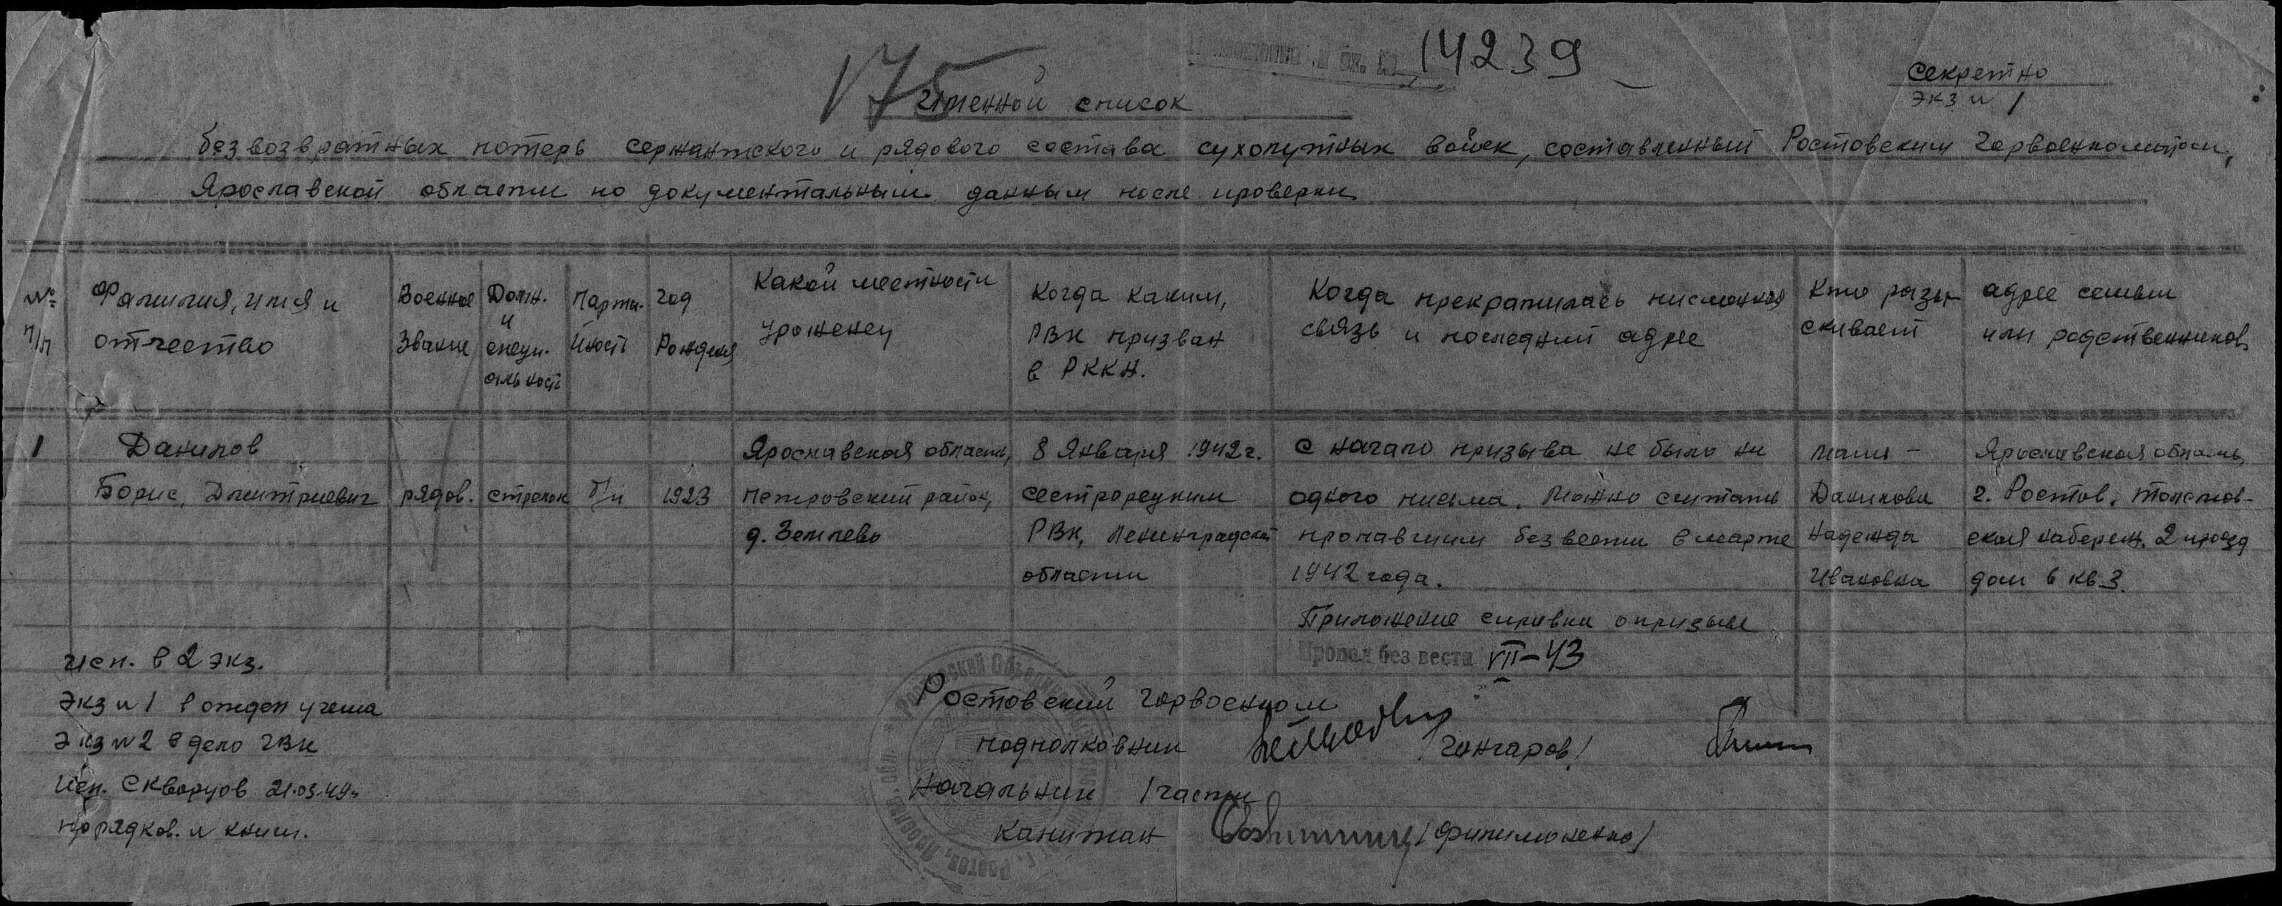 175
14239
Секретно
экз № 1
Именной список
безвозвратных потерь сержантского и рядового состава сухопутных войск, составленный Ростовским Горвоенкоматом,
Ярославской области по документальным данным после проверки
№ п/п
Фамилия, имя и отчество
Военное звание
Долж. и специальность
Партийность
год рождения
Какой местности уроженец
Когда каким, РВК призван в РККА.
Когда прекратилась письменная связь и последний адрес
Кто разыскивает
адрес семьи или родственников
1
Данилов
Борис, Дмитриевич
рядов.
стрелок
б/п
1923
Ярославская область,
Петровский район,
д. Земпево
8 Января 1942 г.
Сестрорецким
РВК, Ленинградской
области
С начало призыва не было ни
одного письма. Можно считать
пропавшим без вести в марте
1942 года.
Приложение справка о призыве
Пропал без вести VII-43
мать -
Данилова
Надежда
Ивановна
Ярославская область,
г. Ростов, Толстов-
ская набереж. 2 проезд
дом 6 кв 3.
Исп. в 2 экз.
Экз № 1 в отдел учета
Экз № 2 в дело ГВК
Исп. Скворцов 21.03.49г.
Ростовский горвоенком
подполковник
Гончаров/
Начальник 1 части
капитан
/Филимоненко/